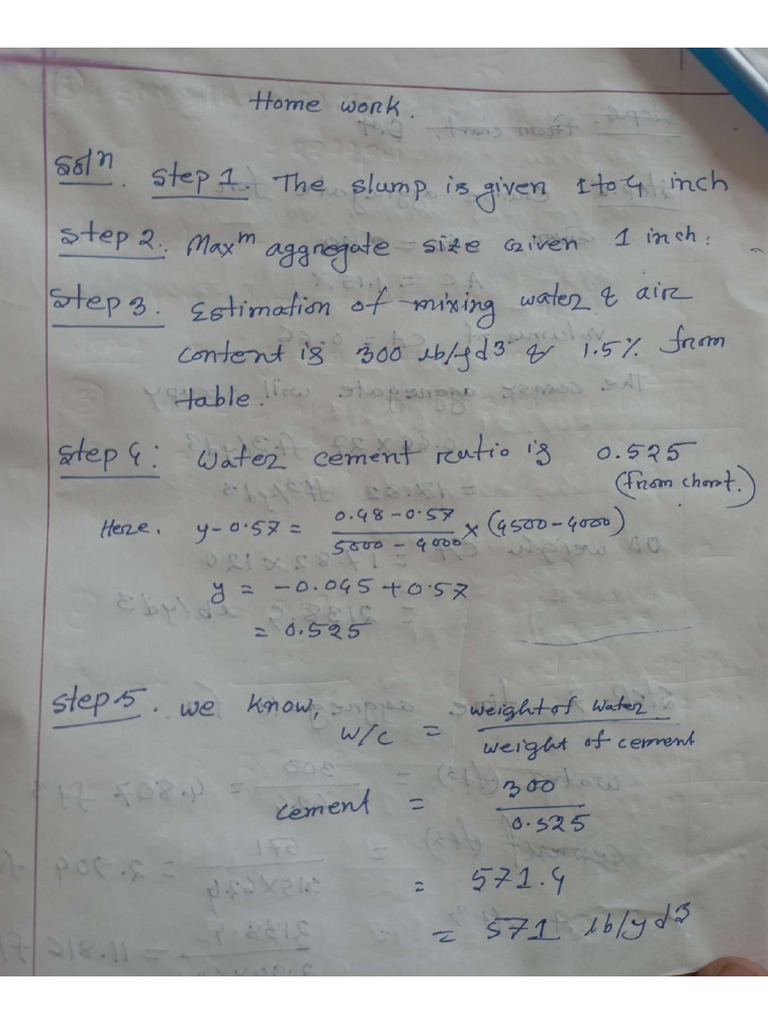 Home work.
Solⁿ. Step 1. The slump is given 1 to 4 inch
Step 2. Maxᵐ aggregate size Given 1 inch.
Step 3. Estimation of mixing water & air
content is 300 lb/yd³ & 1.5% from
table.
Step 4: Water cement ratio is 0.525
(from chart.)
Here, y-0.57 = (0.48-0.57)/(5000-4000) × (4500-4000)
y = -0.045+0.57
= 0.525
Step 5. We know,
W/C = weight of water/weight of cement
cement = 300/0.525
= 571.4
= 571 lb/yd³